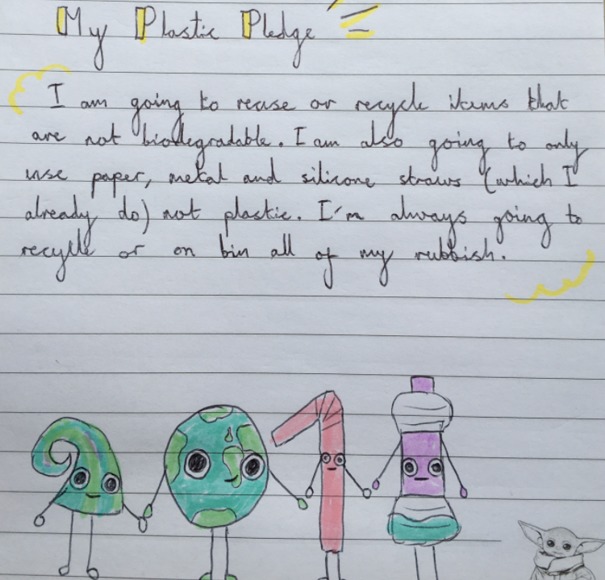 My Plastic Pledge
I am going to reuse or recycle items that
are not biodegradable. I am also going to only
use paper, metal and silicone straws (which I
already do) not plastic. I'm always going to
recycle or on bin all of my rubbish.